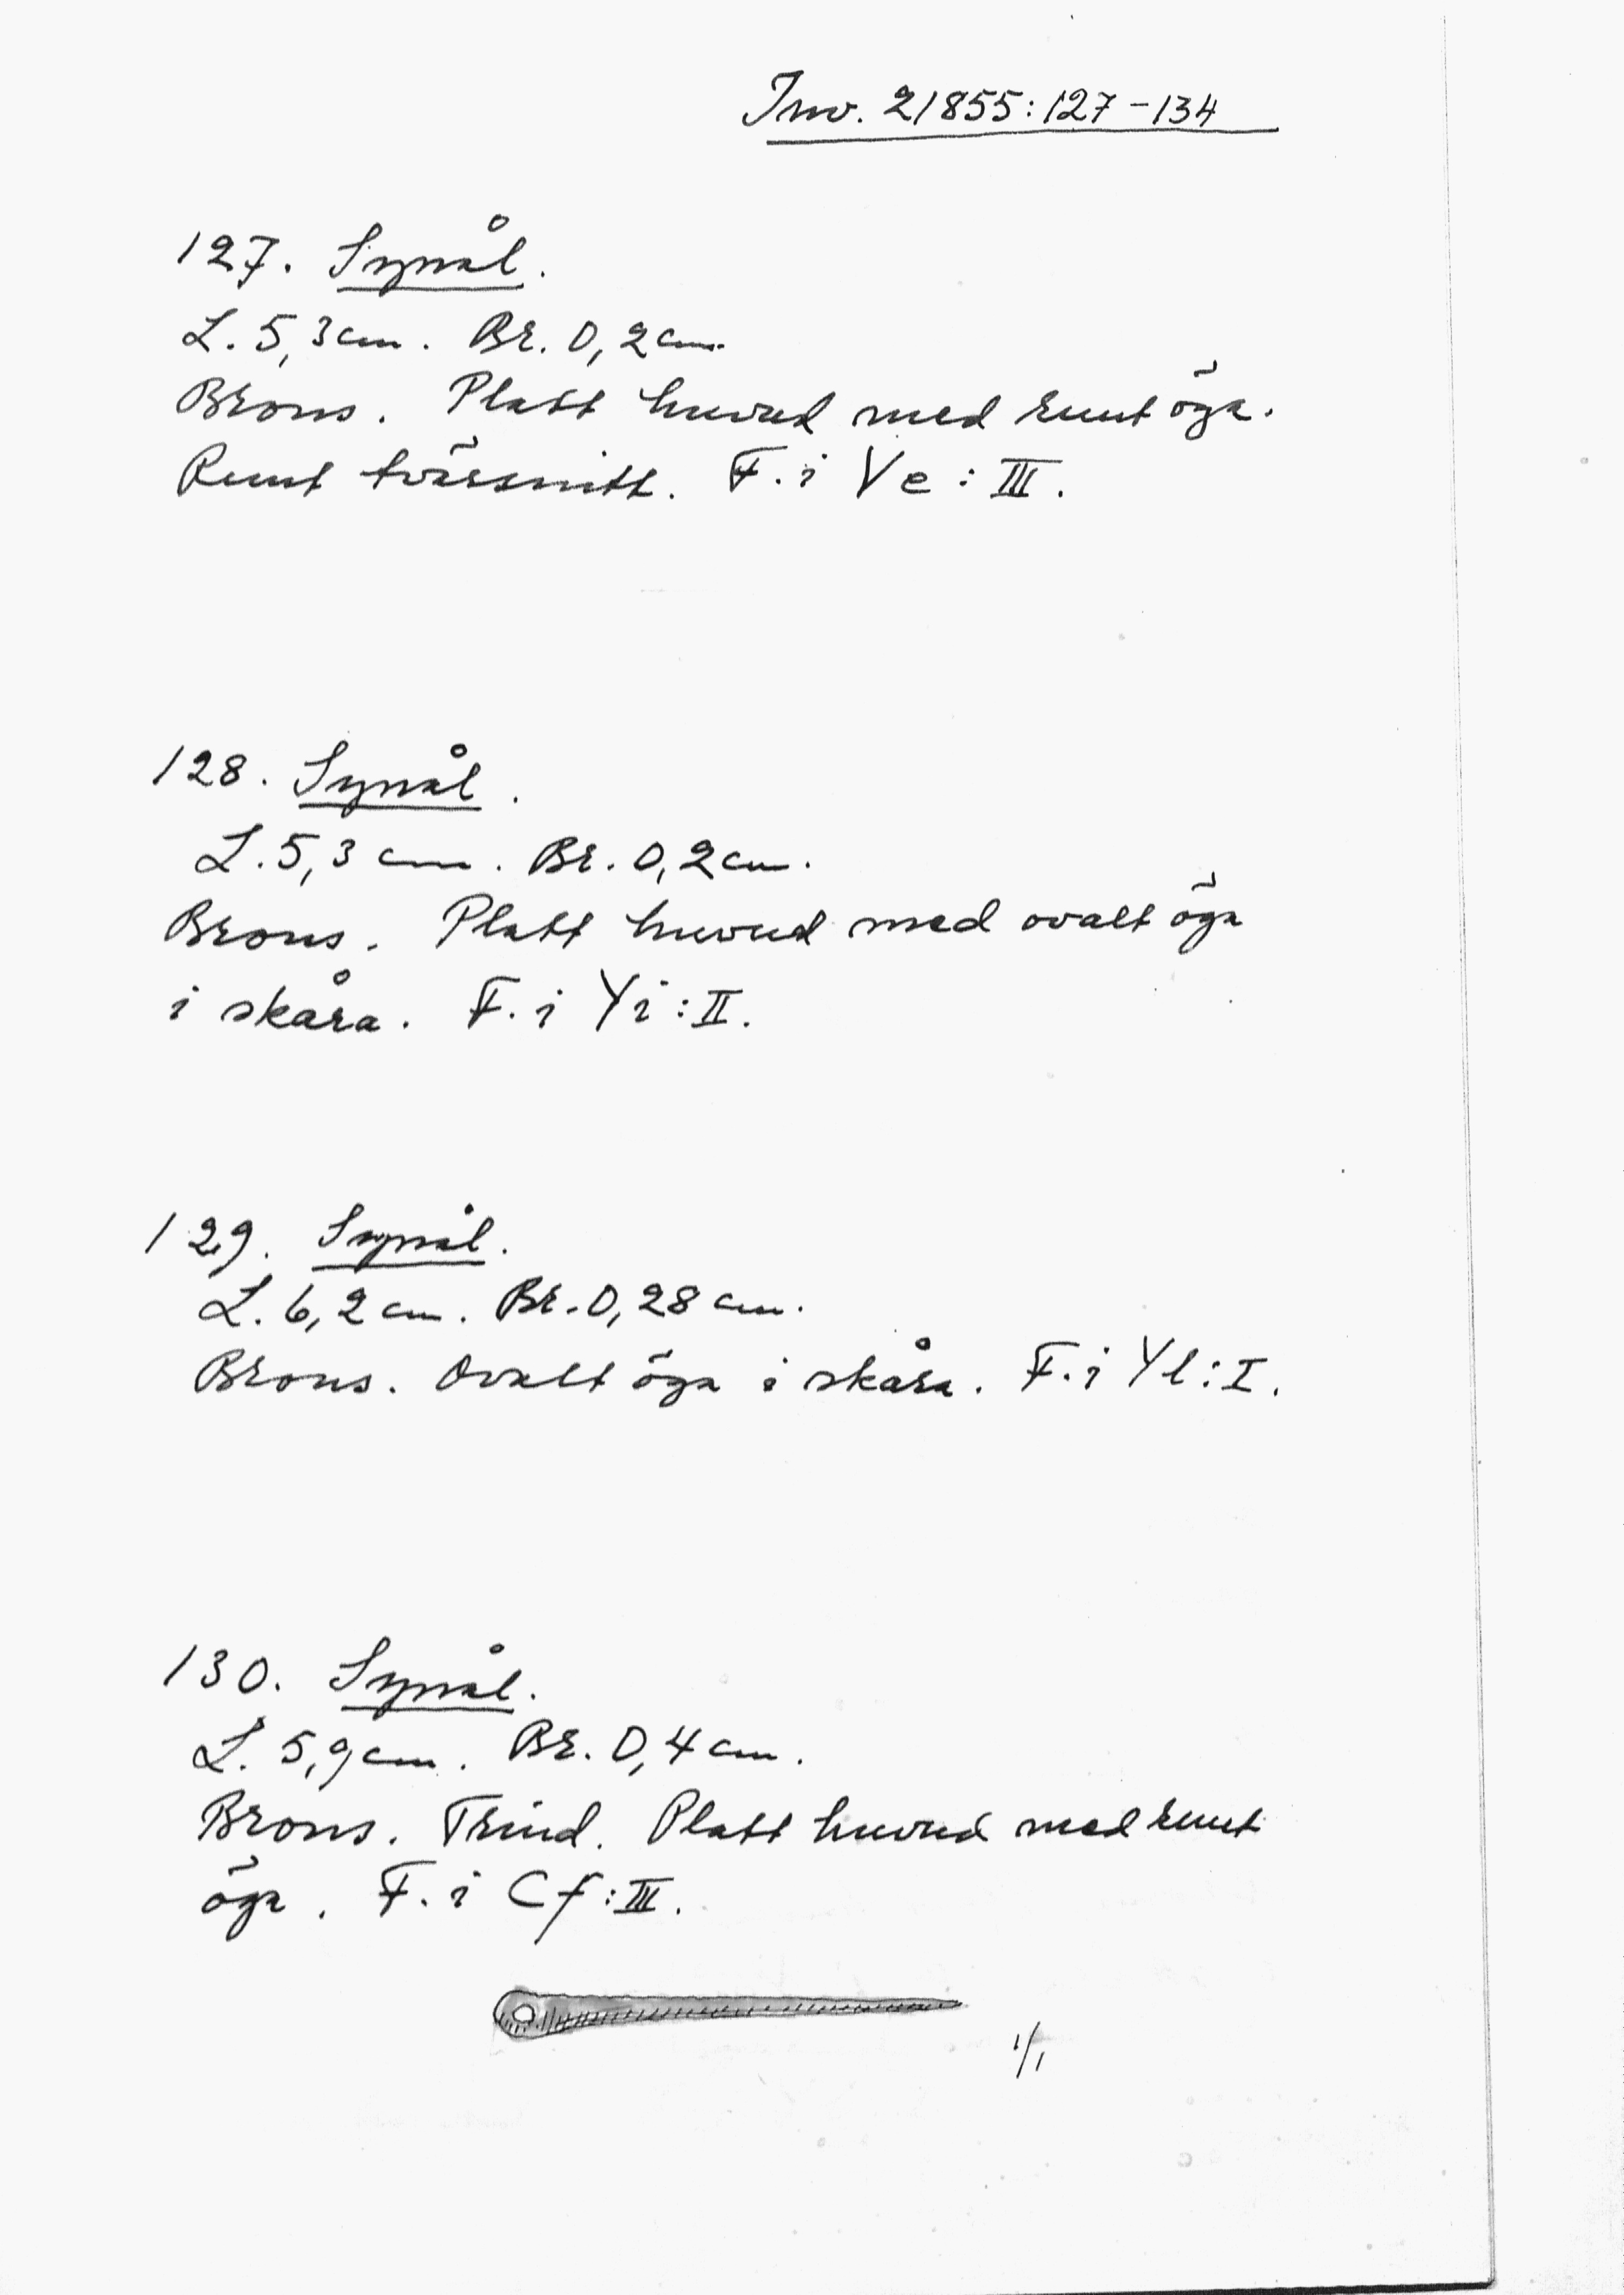 Inv. 21855:127-134
127. Synål.
L. 5,3 cm. Br. 0,2 cm.
Brons. Platt huvud med runt öga.
Runt tvärsnitt. F. i Ve:III.
128. Synål.
L. 5,3 cm. Br. 0,2 cm.
Brons. Platt huvud med ovalt öga
i skåra. F. i Yi:II.
129. Synål.
L. 6,2 cm. Br. 0,28 cm.
Brons. Ovalt öga i skåra. F. i Yl:I.
130. Synål.
L. 5,9 cm. Br. 0,4 cm.
Brons. Trind. Platt huvud med runt
öga. F. i Cf:III.
1/1